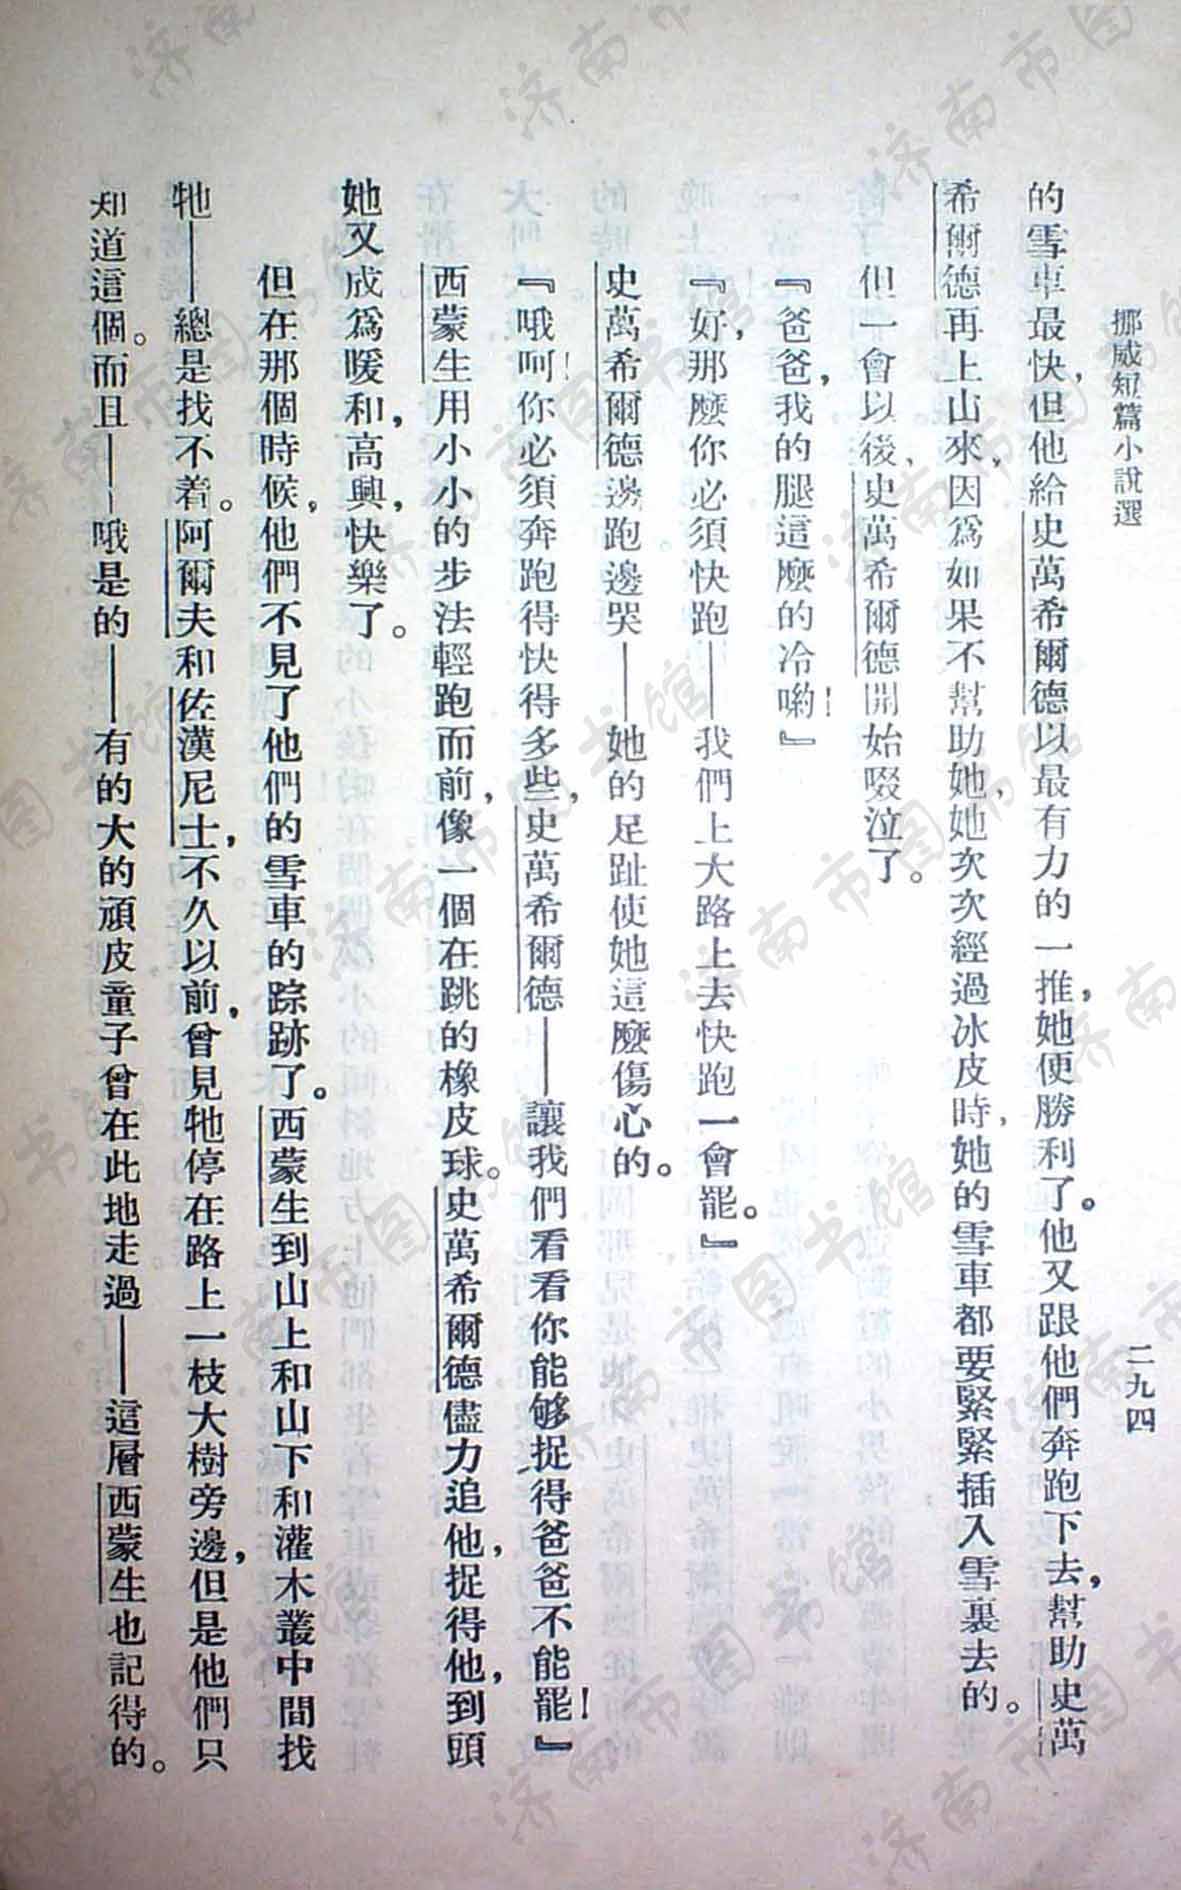 挪威短篇小說選
二九四
的雪車最快，但他給史萬希爾德以最有力的一推，她便勝利了。他又跟他們奔跑下去，幫助史萬
希爾德再上山來，因爲如果不幫助她，她次次經過冰皮時，她的雪車都要緊緊插入雪裏去的。
但一會以後，史萬希爾德開始啜泣了。
『爸爸，我的腿這麼的冷喲！』
『好，那麼你必須快跑——我們上大路上去快跑一會罷。』
史萬希爾德邊跑邊哭——她的足趾使她這麼傷心的。
『哦呵！你必須奔跑得快得多些，史萬希爾德——讓我們看看你能够捉得爸爸不能罷！』
西蒙生用小小的步法輕跑而前，像一個在跳的橡皮球。史萬希爾德儘力追他，捉得他，到頭
她又成爲暖和，高興，快樂了。
但在那個時候，他們不見了他們的雪車的踪跡了。西蒙生到山上和山下和灌木叢中間找
牠——總是找不着。阿爾夫和佐漢尼士，不久以前，曾見牠停在路上一枝大樹旁邊，但是他們只
知道這個。而且——哦是的——有的大的頑皮童子曾在此地走過——這層西蒙生也記得的。
济南市图书馆